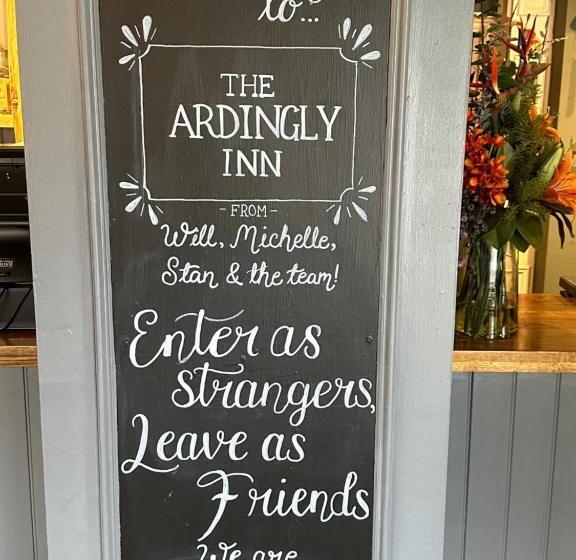 to...
THE
ARDINGLY
INN
- FROM -
Will, Michelle,
Stan & the team!
Enter as
strangers,
Leave as
Friends
We are